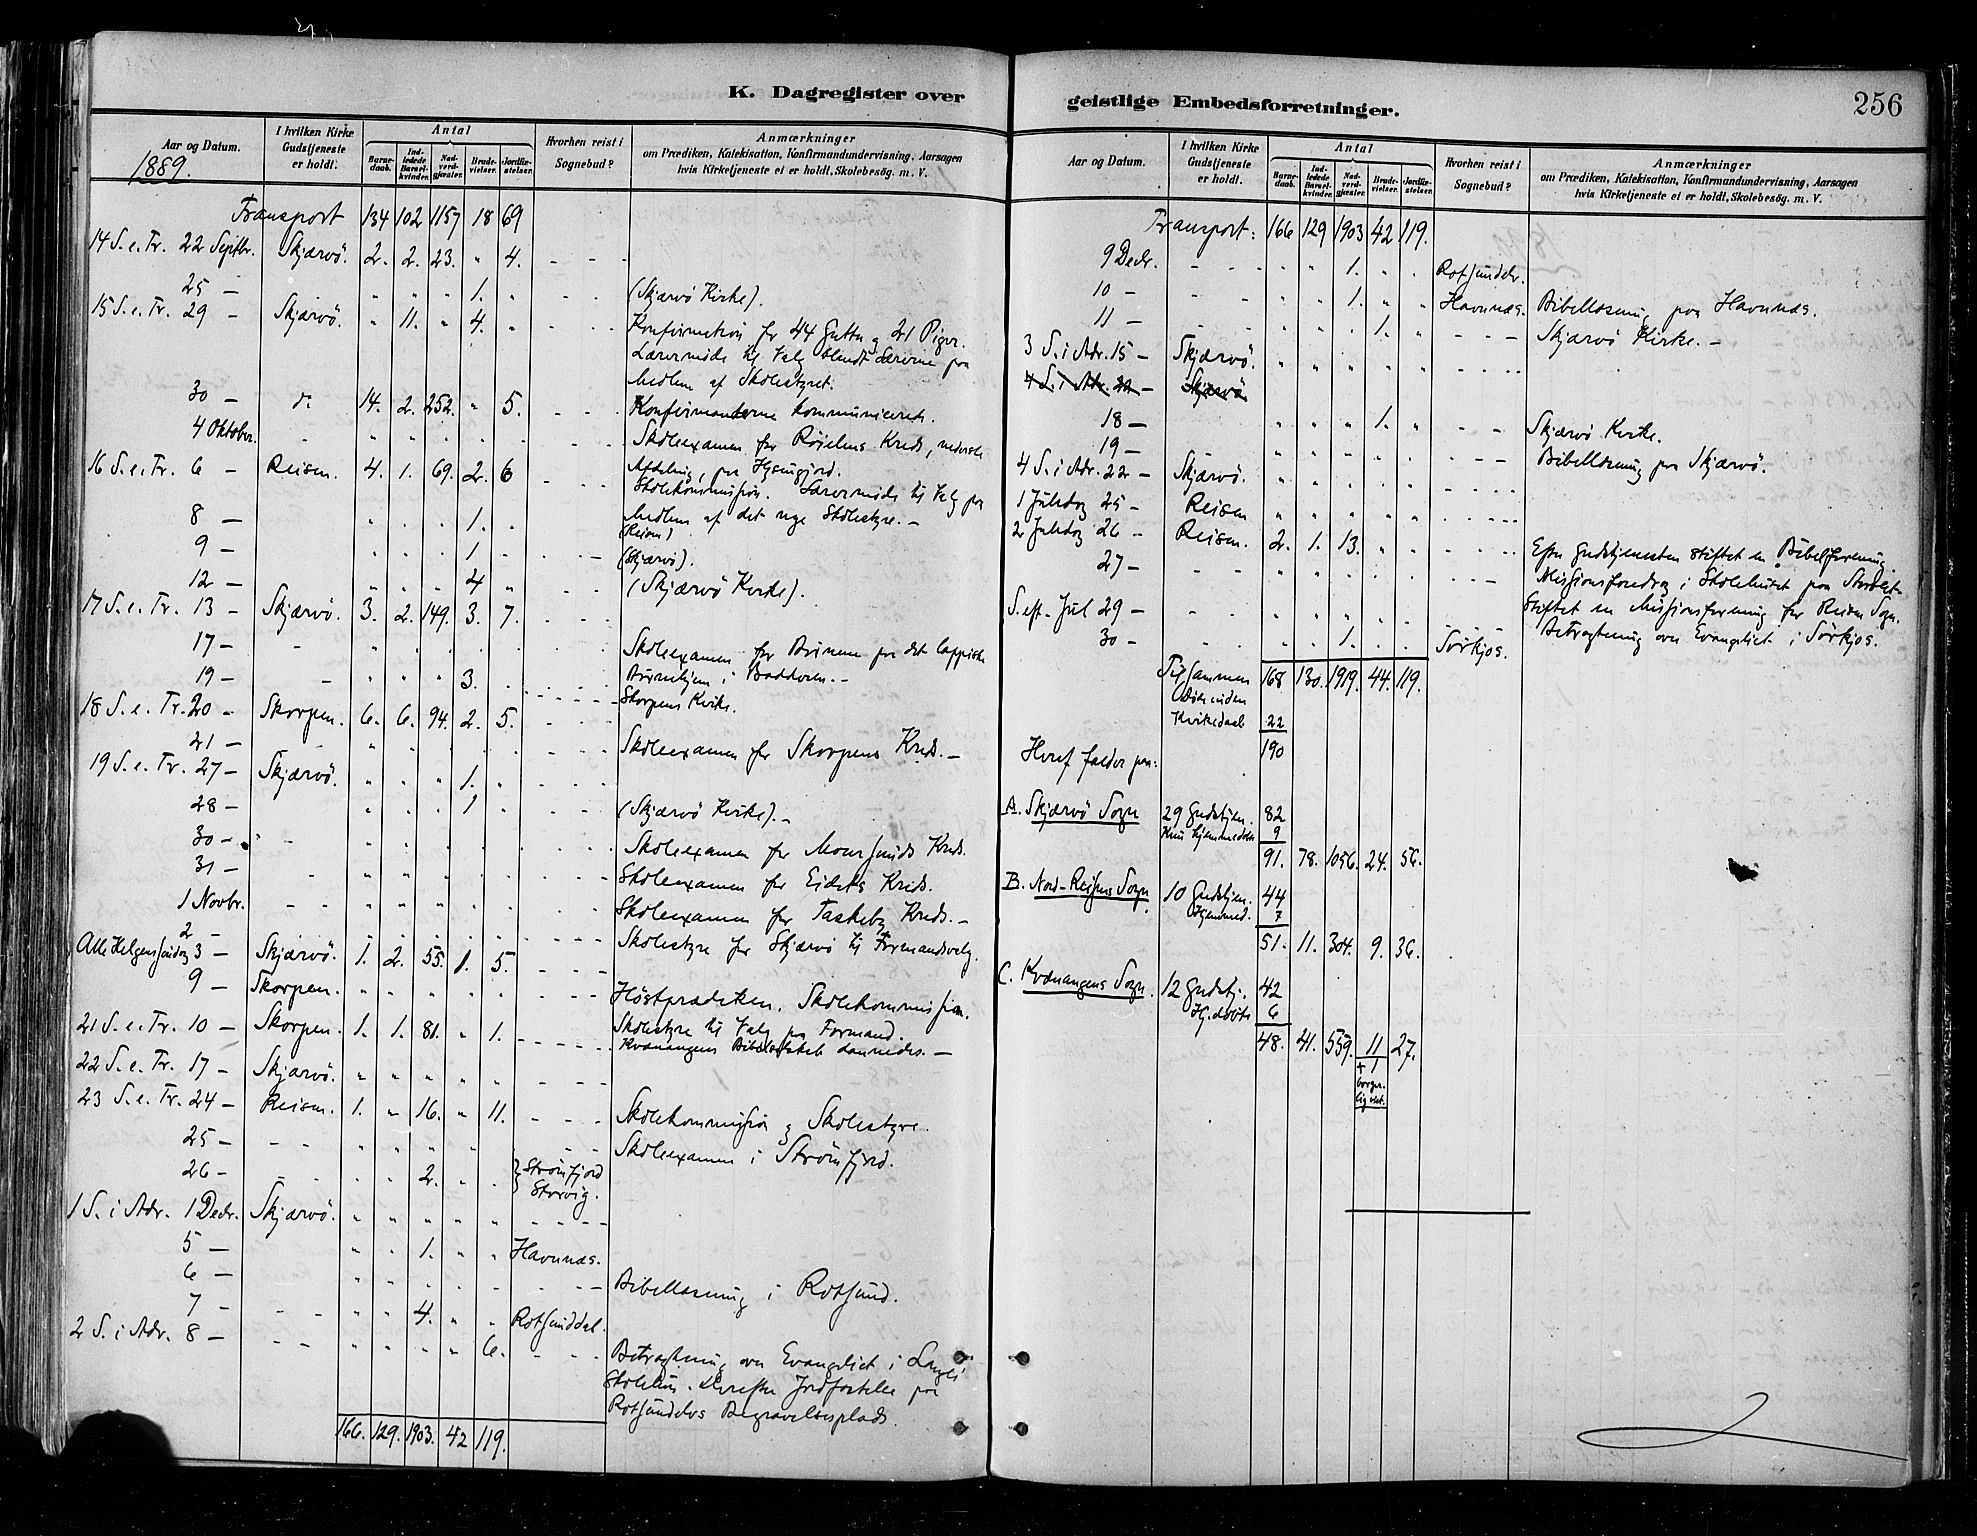 K. Dagregister over
Aar og Datum.
1889.
I hvilken Kirke Gudstjeneste er holdt.
Antal
Barne-daab.
Ind-ledede Barsel-kvinder.
Nad-verd-gjæster.
Brude-vielser.
Jordfæ-stelser.
Hvorhen reist i Sognebud?
Anmærkninger
om Prædiken, Katekisation, Konfirmandundervisning, Aarsagen
hvis Kirketjeneste ei er holdt, Skolebesøg. m. V.
Transport 134 102 1157 18 69
14 S. e. Tr. 22 Septbr. Skjærvö. 2. 2. 23. " 4. - - -
25 - " " " 1. " - - (Skjærvö Kirke).
15 S. e. Tr. 29 - Skjærvö. " 11. " 4. " - - - Konfirmation for 44 Gutter og 21 Piger.
Lærermöde til Valg blandt Lærerne paa
Medlem af Skolestyret.
30 - do 14. 2. 252. " 5. - - - Konfirmanderne kommunicerede.
4 Oktober. - " " " " " - - - Skoleexamen for Kreds, nederste
Afdeling, paa
16 S. e. Tr. 6 - Reisen. 4. 1. 69. 2. 6 - - - Skolekommission. Lærermöde til Valg paa
Medlem af det nye Skolestyre. -
8 - " " " 1. " (Reisen)
9 - " " " 1 - - - - (Skjærvö).
12 - " " " 4 " (Skjærvö Kirke).
17 S. e. Tr. 13 - Skjærvö. 3. 2. 149. 3. 7.
17 - - " " " " " Skoleexamen for Börnene fra det lappiske
Börnehjem i Badderen. -
19 - - " " " 3. - - - - Skorpens Kirke.
18 S. e. Tr. 20 - Skorpen. 6. 6. 94. 2. 5. - - -
21 - " " " " " - - - Skoleexamen for Skorpens Kreds. -
19 S. e. Tr. 27 - Skjærvö. " " " 1. " - - -
28 - " " " 1 " - - - (Skjærvö Kirke). -
30 - - " " " " " - - - Skoleexamen for Maursunds Kreds.
31 - - " " " " " - - - Skoleexamen for Eidets Kreds.
1 Novbr. - - " " " " " - - - Skoleexamen for Taskeby Kreds. -
2 - " " " " " - - - Skolestyre for Skjærvö til Formandsvalg.
Alle Helgens Söndag 3 - Skjærvö. 1. 2. 55. 1. 5. - - -
9 - Skorpen. " " " " " - - - Höstprædiken. Skolekommission.
21 S. e. Tr. 10 - Skorpen. 1. 1. 81. " 1. - - - Skolestyre til Valg paa Formand.
Kvænangens Bibelselskab dannedes. -
22 S. e. Tr. 17 - Skjærvö. " " " " " - - -
23 S. e. Tr. 24 - Reisen. 1. " 16. " 11. - - - Skolekommission og Skolestyre.
25 - - - " " " " " - - Skoleexamen i Strömfjord.
26 - - - " " 2. " " } Strömfjord
Storvig.
1 S. i Adv. 1 Decbr. Skjærvö. " " " " " - - - -
5 - " " 1. " " Havnnæs.
6 - " " " " " - - - Bibellæsning i Rotsund.
7 - - - " " 4. " " Rotsunddal.
2 S. i Adv. 8 - - - " " " " 6. - - - Betragtning over Evangeliet i
Skolehus. Derefter Jordfæstelse paa
Rotsundelvs Begravelsesplads.
166. 129. 1903. 42 119.
geistlige Embedsforretninger.
256
Aar og Datum.
I hvilken Kirke Gudstjeneste er holdt.
Antal
Barne-daab.
Ind-ledede Barsel-kvinder.
Nad-verd-gjæster.
Brude-vielser.
Jordfæ-stelser.
Hvorhen reist i Sognebud?
Anmærkninger
om Prædiken, Katekisation, Konfirmandundervisning, Aarsagen
hvis Kirketjeneste ei er holdt, Skolebesøg. m. V.
Transport: 166 129 1903 42 119.
9 Decbr. - - - " 1. " " Rotsundelv.
10 - - - " " 1. " " Havnnæs. Bibellæsning paa Havnnæs.
11 - - - " " " 1. " - - - Skjærvö Kirke. -
3 S. i Adv. 15 - Skjærvö. " " " " " - - - -
4 S. i Adv. 22 - Skjærvö
18 - " " " 1. " - - Skjærvö Kirke.
19 - - " " " " " - - - Bibellæsning paa Skjærvö.
4 S. i Adv. 22 - Skjærvö. " " " " " - - - -
1 Juledag 25 - Reisen " " " " " - - - -
2 Juledag 26 - Reisen. 2. 1. 13. " " - - - Efter Gudstjenesten stiftet en Bibelforening.
27 - - - " " " " " - - - Missionsforedrag i Skolehuset paa Storslet
S. eft. Jul 29 - - - " " " " " - - - Stiftet en Missionsforening for Reisen Sogn.
30 - - " " 1. " " Sörkjos. Betragtning over Evangeliet i Sörkjos.
Tilsammen 168 130. 1919. 44. 119.
Døde inden
Kvikedaab 22
190
Heraf falder paa:
A. Skjærvö Sogn 29 Gudstjen. 82
Hjemmedöbte 9
91. 78. 1056. 24. 56.
B. Nord-Reisens Sogn 10 Gudstjen. 44
Hjemmed. 7
51. 11. 304. 9. 36.
C. Kvænangens Sogn. 12 Gudstj. 42
Hj. döbte 6
48. 41. 559. 11 27.
+ 1
borger-
lig viet.